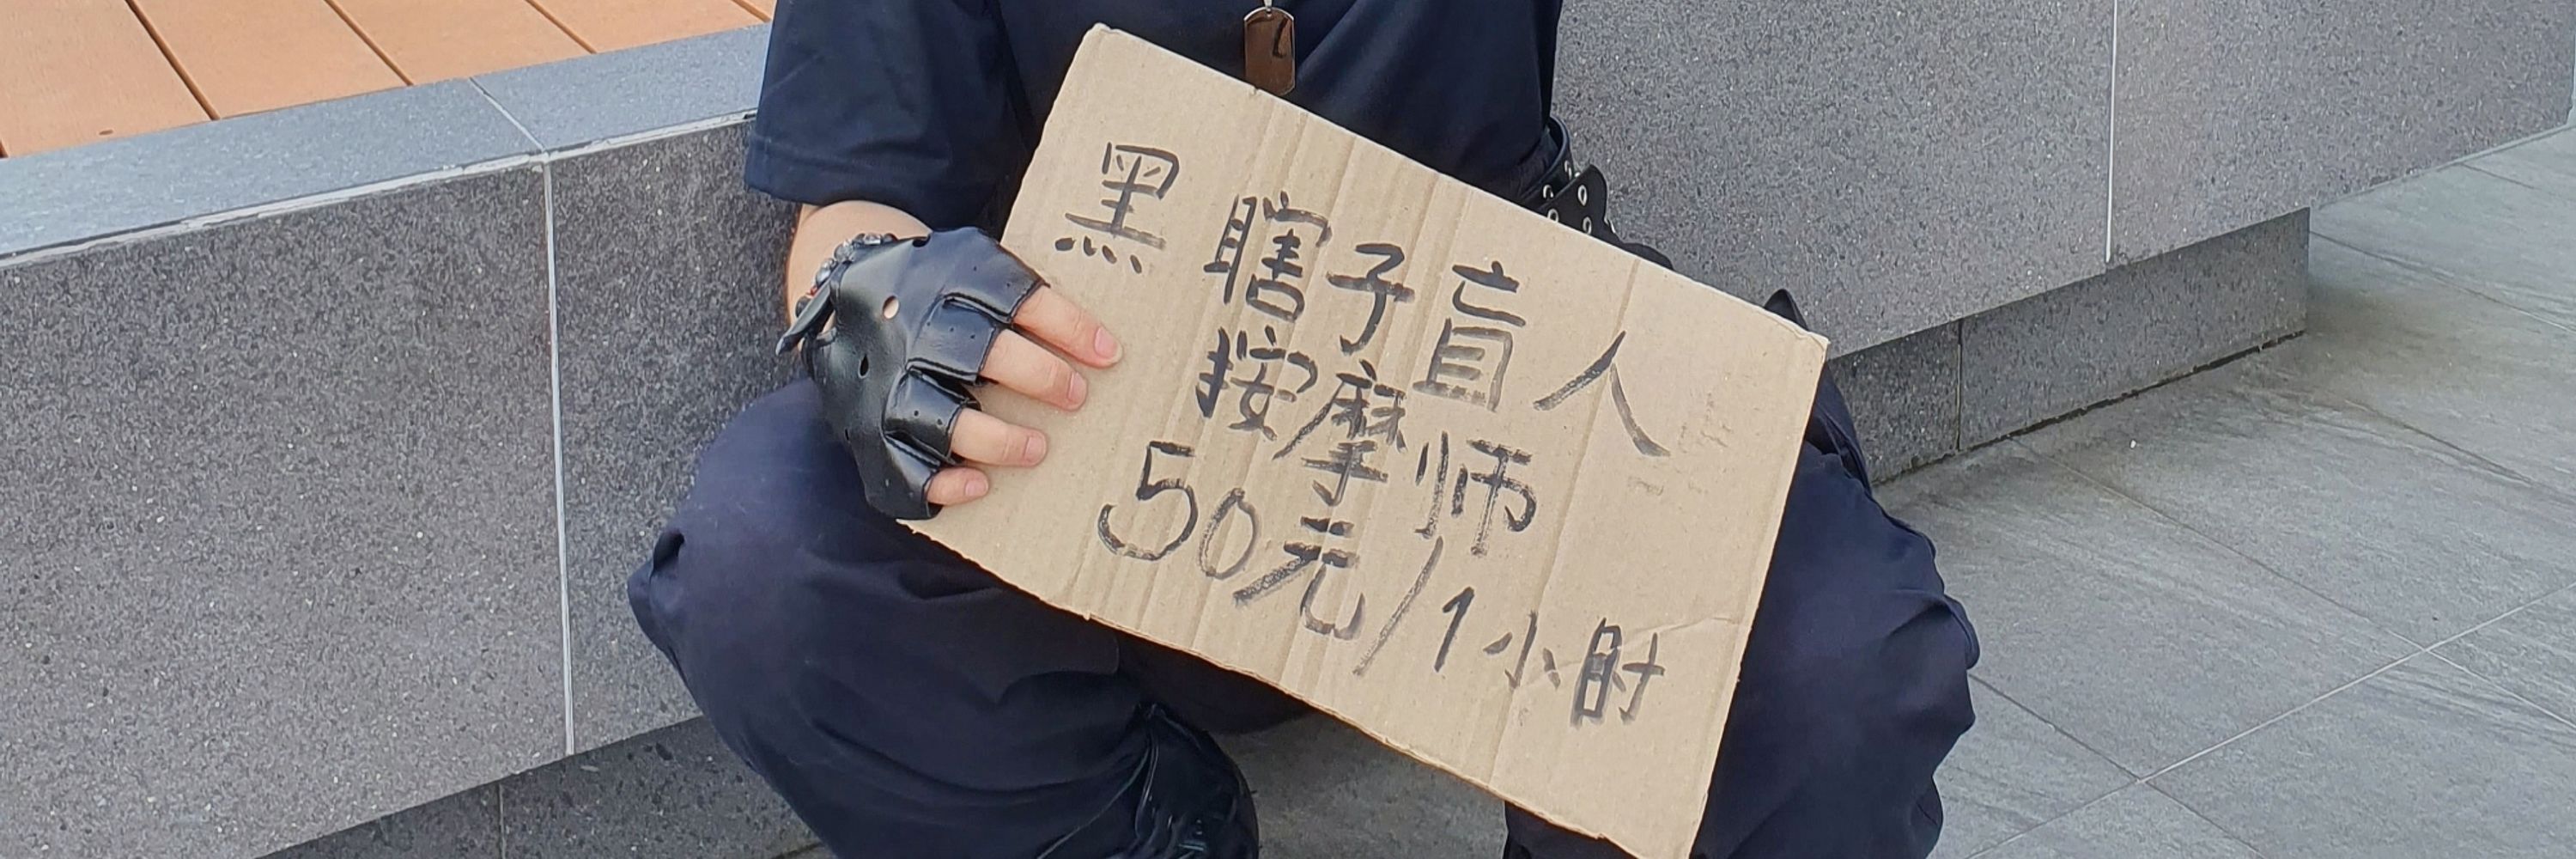 黑瞎子盲人
按摩师
50元/1小时